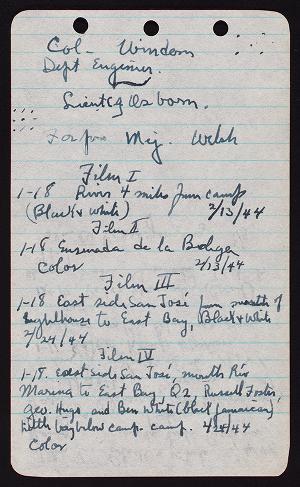 Col- Windom
Dept Engineer.
Lient Cg Osborn.
Mij. Welsh
Film I
1-18 River 4 miles from camp
(Black & White) 2/13/44
Film II
1-18 Ensenada de la Bodega
Color 2/13/44
Film III
1-18 East side San José from mouth of
lighthouse to East Bay, Black & White
2/24/44
Film IV
1-18. east side San José, mouth Rio
Marina to East Bay, Q2, Russell Foster,
Geo. Hugo and Ben White (black Jamaican)
little bay below camp. camp.
Color